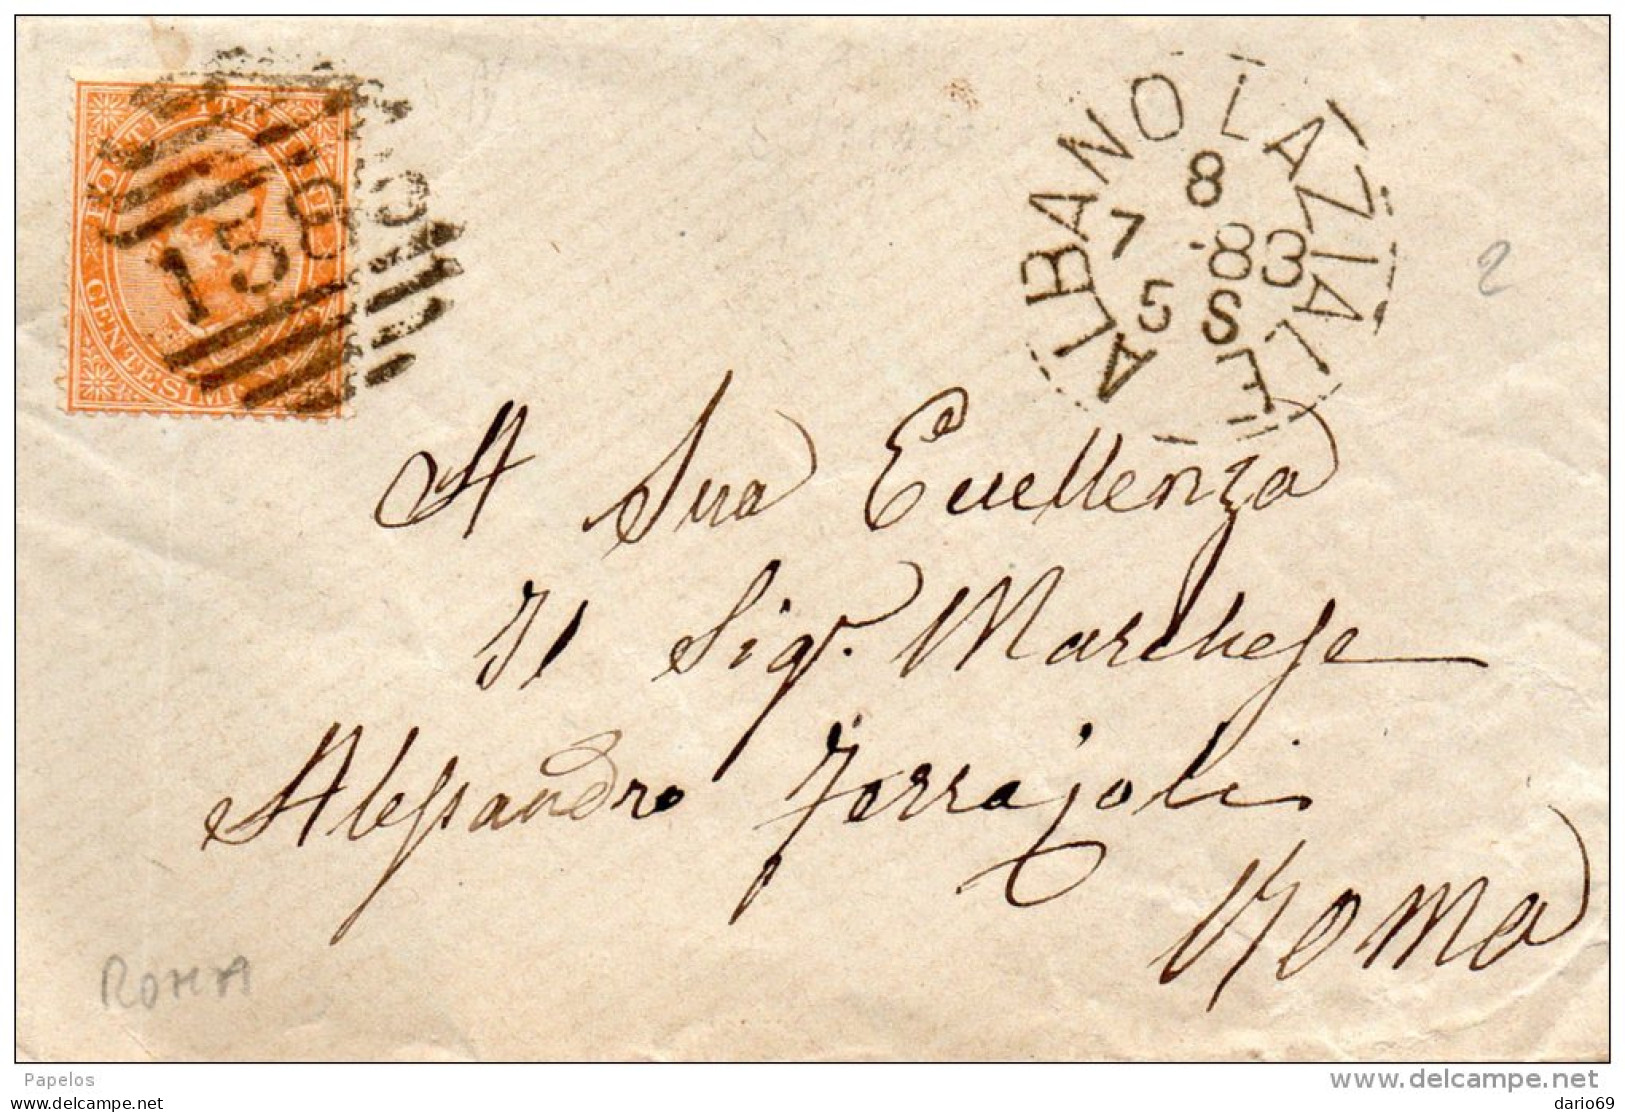 POSTE ITALIANE
CENTESIMI VENTI
ALBANO LAZIALE
8
7 83
5 S
2
A Sua Eccellenza
Il Sigr. Marchese
Alessandro Ferrajoli
Roma
ROMA
Papelos
www.delcampe.net
all rights reserved
dario69